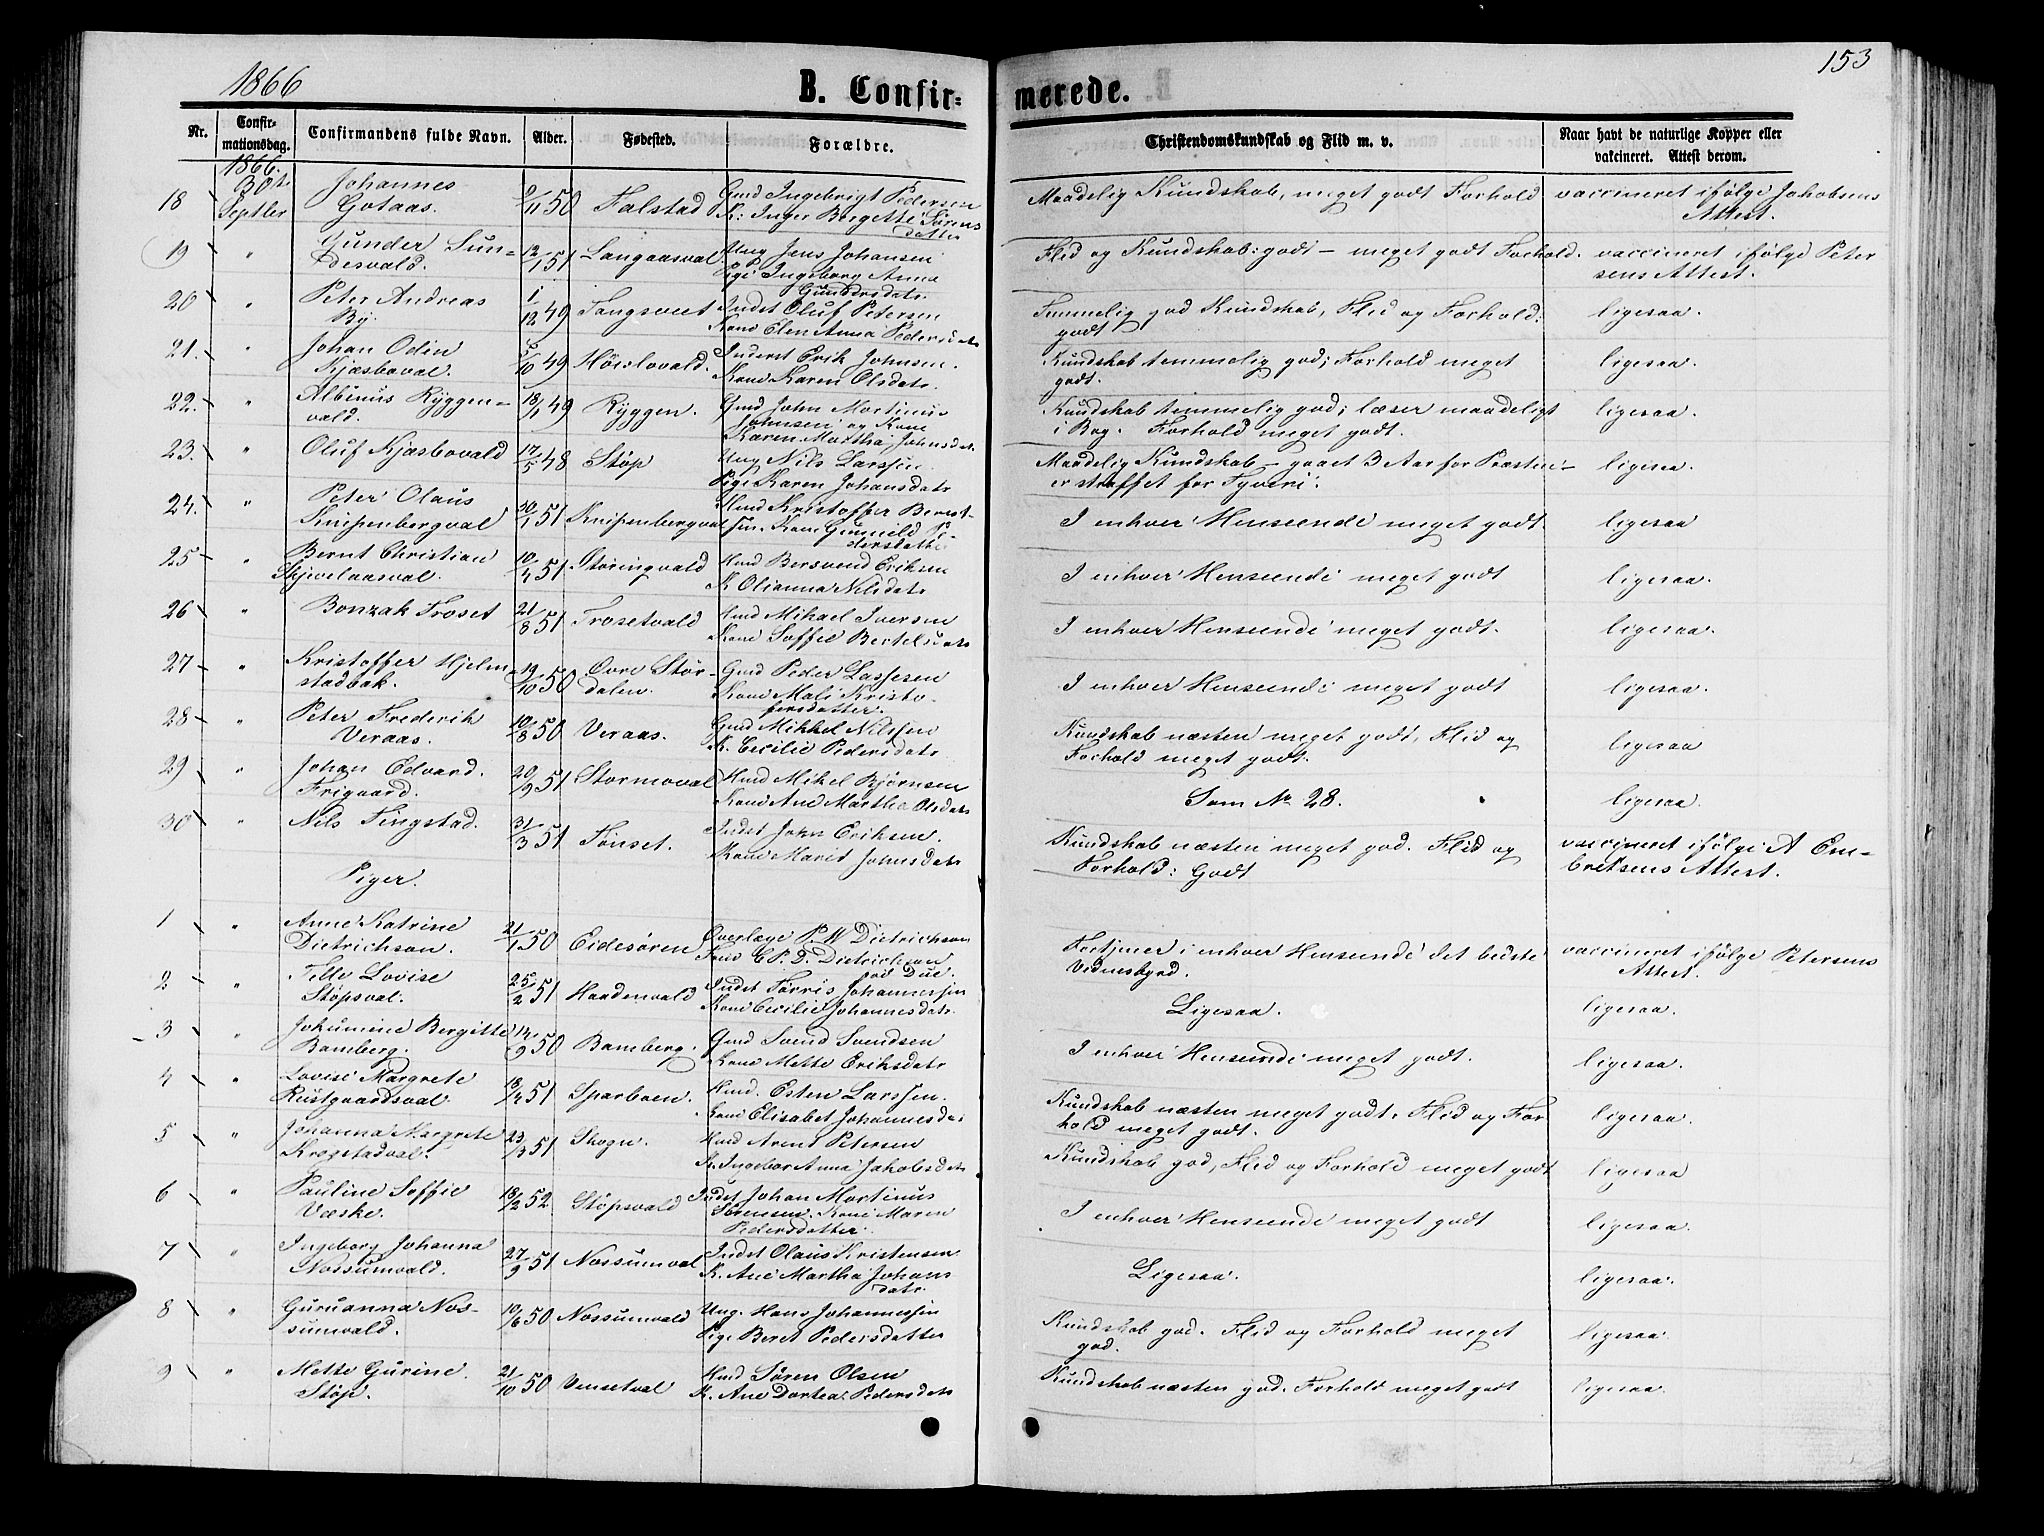 1866
B. Confir-
merede.
153
Nr.
Confir-
mationsdag.
Confirmandens fulde Navn.
Alder.
Fødested.
Forældre.
Christendomskundskab og Flid m. v.
Naar havt de naturlige Kopper eller
vakcineret. Attest derom.
1866.
18 30te Septber Johannes Gotaas. 9/11 50 Falstad Gmd Ingebrigt Pedersen
K: Inger Bergette Sørens
datter
Maadelig Kundskab, meget godt Forhold vaccineret ifølge Jakobsens
Attest.
19 " Gunder Sun-
desvald. 12/1 51 Langaasval Ung Jens Johansen
Pige Ingeborg Anna
Gundersdatr.
Flid og Kundskab: godt – meget godt Forhold. vaccineret ifølge Peter
sens Attest.
20 " Peter Andreas
By. 1/12 49 Indst Oluf Pedersen
Kone Elen Anna Pedersdatr
Temmelig god Kundskab, Flid og Forhold:
godt
ligesaa.
21. " Johan Odin
Kjesboval. 5/10 49 Inderst Erik Johnsen.
Kone Karen Olsdatr.
Kundskab temmelig god; Forhold meget
godt.
ligesaa.
22. " Albinus Ryggen-
vald. 18/1 49 Ryggen. Gmd John Mortinus
Johnsen og Kone
Karen Martha Johnsdatr.
Kundskab temmelig god; læser maadeligt
i Bog. Forhold meget godt.
ligesaa.
23. " Oluf Kjesbovald 17/5 48 Støp Ung Nils Larssen
Pige Karen Johansdatr
Maadelig Kundskab – gaaet 3 Aar for Præsten –
er straffet for Tyveri.
ligesaa.
24. " Peter Olaus
Knipenbergval 30/1 51 Knipenbergval Hmd Kristoffer Bernt-
sen. Kone Gunnild Pe-
dersdatter
I enhver Henseende meget godt.
ligesaa
25 – " Bernt Christian
Skjevelaasval. 10/4 51 Storingvald Hmd Bersvend Eriksen
K Olianna Nilsdatr
I enhver Henseende meget godt
ligesaa.
26 " Bonzak Troset 21/8 51 Trosetvald Hmd Mikael Iversen
Kone Soffie Bertelsdatr
I enhver Henseende meget godt.
ligesaa.
27 – " Kristoffer Hjelm
stadbak. 19/10 50 Øvre Stør-
dalen. Gmd Peder Lassesen
Kone Mali Kristo-
fersdatter.
I enhver Henseende meget godt
ligesaa.
28 – " Peter Frederik
Veraas. 10/8 50 Veraas. Gmd Mikkel Nilssen
K. Cecilie Pedersdatr
Kundskab næsten meget godt, Flid og
Forhold meget godt.
ligesaa
29 " Johan Edvard.
Frigaard. 20/9 51 Stormoval Hmd Mikel Bjørnsen
Kone Ane Martha Olsdatr
Som No 28.
ligesaa.
30 " Nils Tingstad. 31/3 51 Tønset. Indst John Eriksen.
Kone Marit Johnsdatr
Kundskab næsten meget god. Flid og
Forhold: Godt
vaccineret ifølge A Em-
bretsens Attest.
Piger.
1 " Anne Katrine
Dietrichson. 21/1 50 Eidesøren Overlæge P. W Dietrichson
Frue C P. D. Dietrichson
fød Due.
Fortjener i enhver Henseende det bedste
Vidnesbyrd.
vaccineret ifølge Petersens
Attest.
2 " Lovise
Støpsval. 25/2 51 Haadenvald Indst Tørris Johannessen
Kone Cecilie Johannesdatr.
Ligesaa.
ligesaa.
3 " Johumine Bergitte
Bamberg. 14/9 50 Bamberg. Gmd Svend Svendsen
Kone Mette Eriksdatr
I enhver Henseende meget godt.
ligesaa.
4 " Lovise Margrete
Rustgaardsval 18/4 51 Sparboen. Hmd. Esten Larssen.
Kone Elisabet Johannesda:
Kundskab næsten meget godt. Flid og For
hold meget godt.
ligesaa.
5 " Johanna Margrete
Krogstadval. 23/3 51 Skogn. Hmd Arent Petersen
K. Ingebor Anna Jakobsdatr
Kundskab god, Flid og Forhold meget godt
ligesaa
6 " Pauline Soffie
Væske. 18/2 52 Støpsvald Indst Johan Mortinus
Sørensen. Kone Maren
Pedersdatter.
I enhver Henseende meget godt
ligesaa.
7 " Ingeborg Johanna
Nossumvald. 27/9 51 Nossumval Indst Olaus Kristensen
K. Ane Martha Johans
datr.
Ligesaa.
ligesaa.
8 " Guruanna Nos-
sumvald. 10/6 50 Nossumvald Ung. Hans Johannessen
Pige Beret Pedersdatter
Kundskab god. Flid og Forhold meget
god.
ligesaa.
9 " Mette Gurine.
Støp. 21/10 50 Vensetval Hmd Søren Olsen
K. Ane Dortea Pedersdatr
Kundskab næsten god. Forhold meget godt
ligesaa.